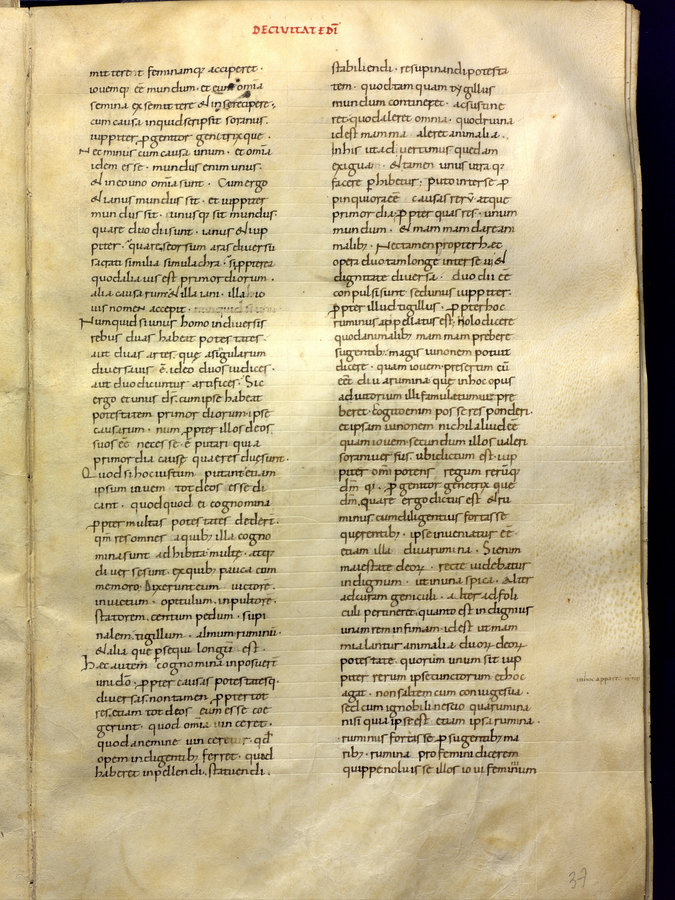 DE CIVITATE DI
mitteret feminamq; acciperet.
iouemq; eē mundum. et eum omia
semina ex se mittere & in se recipere.
cum causa inquid scripsit soranus.
iuppiter pgenitor genetrixque.
Nec minus cum causa unum. et omia
idem esse. mundus enim unus.
& in eo uno omia sunt. Cum ergo
& ianus mundus sit. et iuppiter
mundus sit. unusq; sit mundus
quare duo dii sunt. ianus & iup
piter. quare seorsum aras diuersis
quodalia uis est primordiorum.
alia causarum & illa iani. illa
uis nomen accepit.
Numquid si unus homo in diuersis
rebus duas habeat potestates.
aut duas artes. que
diuersa uis ē. ideo duos iudices.
aut duo dicuntur artifices. Sic
ergo et unus ds. cum ipse habeat
potestatem primordiorum ipse
causarum. num ppter illos deos
suos eē necesse ē putari quia
primordia cause que res due sunt.
Quod si hoc iustum putant etiam
ipsum iouem tot deos esse di
cant. quodquod ei cognomina
ppter multas potestates dederūt.
qm res omnes a quib; illa cogno
mina sunt adhibita multe. atq;
diuerse sunt. ex quib; pauca com
memoro. Dixerunt eum uictorē.
inuictum. opitulum. inpulsorē.
statorem. centum pedum. supi
nalem. tigillum. almum. ruminū.
& alia que psequi longū est.
Haec autem cognomina inposuerūt
uni dō. ppter causas potestatesq;
diuersas. non tamen ppter tot
res. etiam tot deos eum esse coe
gerunt. quod omia uinceret.
quod a nemine uinceretur. qd
opem indigentib; ferret. quod
haberet inpellendi. statuendi.
stabiliendi. resupinandi potesta
tem. quod tamquam tygillus
mundum contineret. ac sustine
ret. quod aleret omnia. quod ruma
id est mamma aleret animalia.
In his ut aduertimus quedam
exigua. & tamen unus utraq;
facere phibetur. puto inter se p
pinquiora eē causas rerū atque
primordia. ppter quas res. unum
mundum. & mammam dare ani
malib;. Nec tamen propter haec
opera duo tam longe inter se ui &
dignitate diuersa. duo dii eē
conpulsi sunt sed unus iuppiter.
ppter illud tigillus. ppter hoc
ruminus appellatus est. nolo dicere
quod animalib; mammam prebere
sugentib; magis iunonem potuit
dicere. quam iouem presertim cū
eēt diua rumina que in hoc opus
adiutorium illi famulatumue pre
beret. cogito enim posse responderi.
et ipsam iunonem nichil aliud eē
quam iouem secundum illos ualeri
sorani uersus. ubi dictum est. iup
piter omipotens regum rerūq;
dm q; pgenitor genetrix que
dm. quare ergo dictus est & ru
minus cum diligentius fortasse
querentib; ipse inueniatur eē
etiam illa diua rumina. Si enim
maiestate deorū recte uidebatur
indignum ut in una spica. alter
ad curam geniculi. alter ad folli
culi pertineret. quanto est indignius
unam rem infimam. id est ut mam
mis alantur animalia duorū deorū
potestate. quorum unum sit iup
piter rerum ipse cunctorum et hoc
agat. non saltem cum coniuge sua.
sed cum ignobili nescio qua rumina
nisi quia ipse est etiam ipsa rumina.
ruminus fortasse p sugentib; ma
rib;. rumina pro feminis. dicerem
quippe noluisse illos ioui feminīum
37